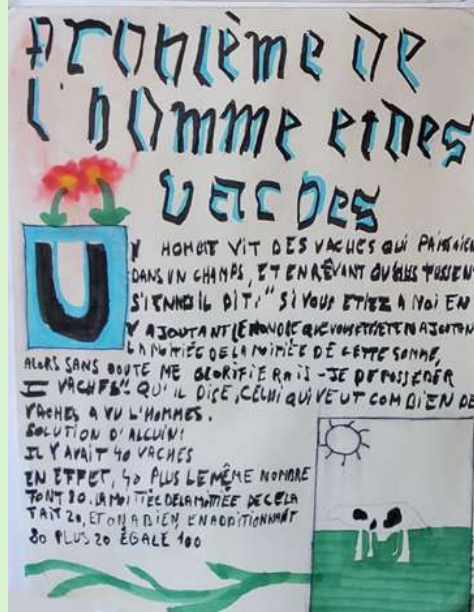 Problème de
l'homme et des
vaches
UN HOMME VIT DES VACHES QUI PAISSAIEN
DANS UN CHAMPS, ET EN RÊVANT QU'ELLES FUSSENT
SIENNES IL DIT: "SI VOUS ETIEZ A MOI EN
Y AJOUTANT LE NONBRE QUE VOUS ETES ET EN AJOUTANT
LA MITIÉE DE LA MITIÉE DE CETTE SOMME,
ALORS SANS DOUTE ME GLORIFIERAIS-JE DE POSSEDER
VACHES" QU'IL DISE, CELUI QUI VEUT COMBIEN DE
VACHES A VU L'HOMMES.
SOLUTION D'ALCUIN:
IL Y AVAIT 40 VACHES
EN EFFET, 40 PLUS LE MÊME NOMBRE
FONT 80. LA MOITIÉE DE LA MITTIÉE DE CELA
FAIT 20, ET ON A BIEN, EN ADDITIONNANT
80 PLUS 20 ÉGALE 100